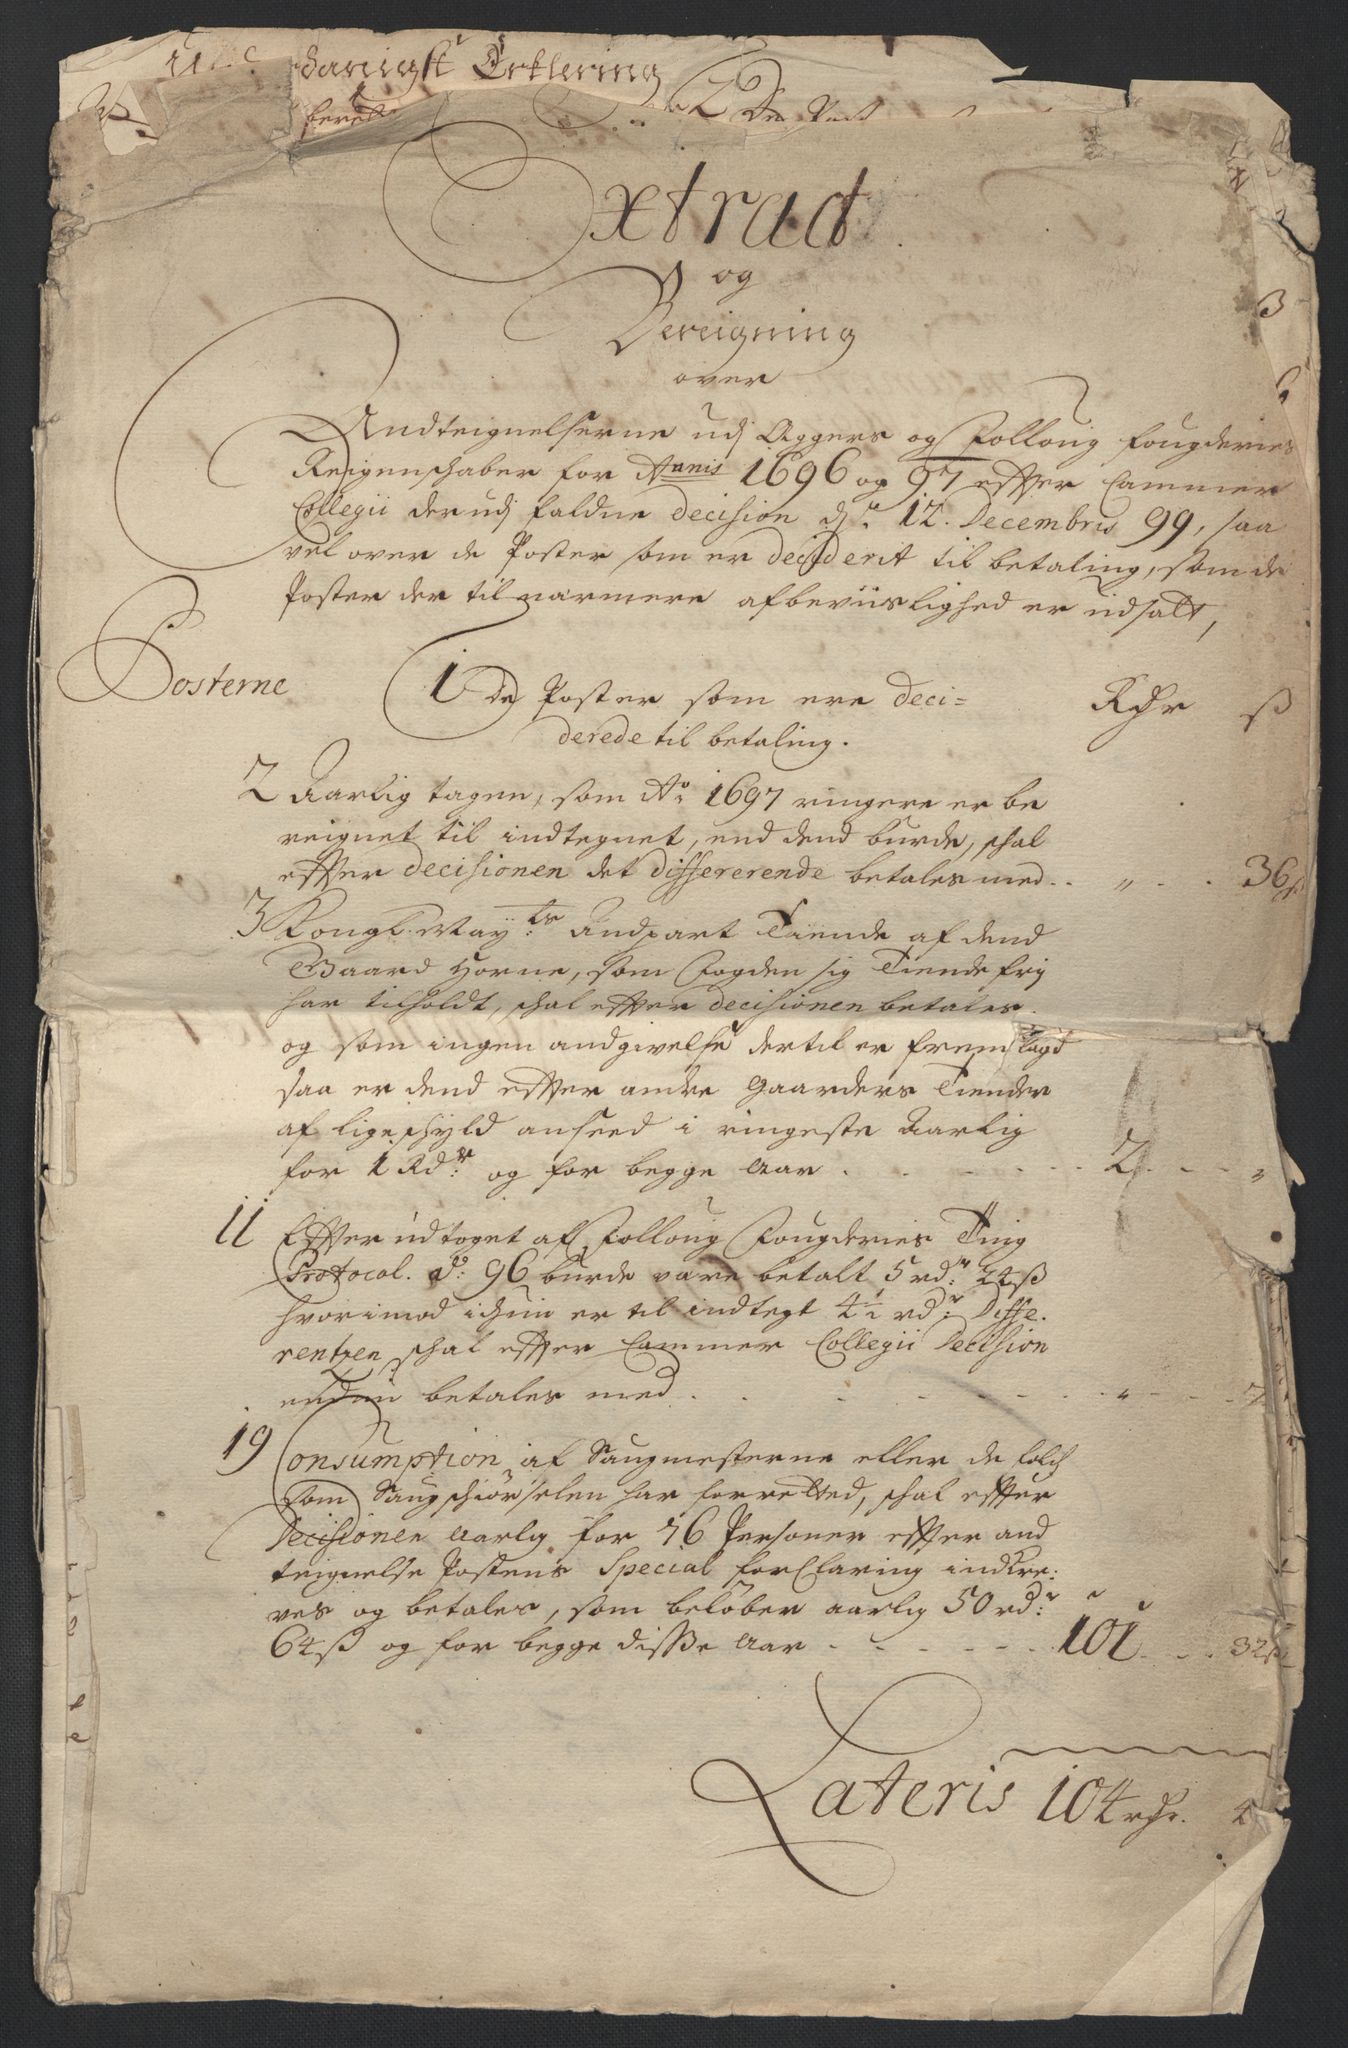 danigst Ertlering
Extract
og
Bereigning
over
Andteignelserne udj Aggers og Folloug fougderies
Reigenschaber for Annis 1696 og 97 effter Cammer
Collegii derudj faldne decision dj 12. Decembris 99, saa
vel over de Poster som er deciderit til betaling, som de
Poster der til narmere afbeviislighed er udsatt,
Posterne
1 De Poster som ere deci=
derede til betaling.
Rdr ß
2 Aarlig tagen, som Ao 1697 ringere er be
reignet til indtegnet, end dend burde, schal
effter decisionen det differerende betales med . . „ . . 36 ß
3 Kongl. Mayts Andpart Tiende af dend
Gaard Horne, som fogden sig Tiende frj
har tilholdt, schal effter decisionen betales.
og som ingen andgivelse dertil er fremlagd
saa er dend effter andre Gaarders Tiender
af lige schyld anseed i ringeste Aarlig
for 1 Rdr og for begge Aar . . . . 2 . . . „
11 Effter udtoget af Folloug Fougderies Ting
Protocol. Ao 96 burde vare betalt 5 rdr 24 ß
hvorimod ichun er til indtegt 4½ rdr Diffe.
rentzen schal effter Cammer Collegii Decision
endnu betales med . . . . „ . . . 7
19 Consumption af Saugmesterne eller de folch
som Saugschiørselen har forretted, schal effter
Decisionen aarlig for 76 Personer effter and
teignelse Postens Special forClaring indKre:
ves og betales, som beløber aarlig 50 rdr
64 ß og for begge disse Aar . . . . 101 . . . 32 ß
Lateris 104 rdr. 4